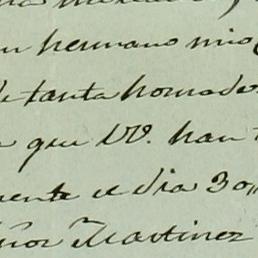 hermano mio
tanta honrade
que VV. han
ente el dia 30,,
ñor Martinez